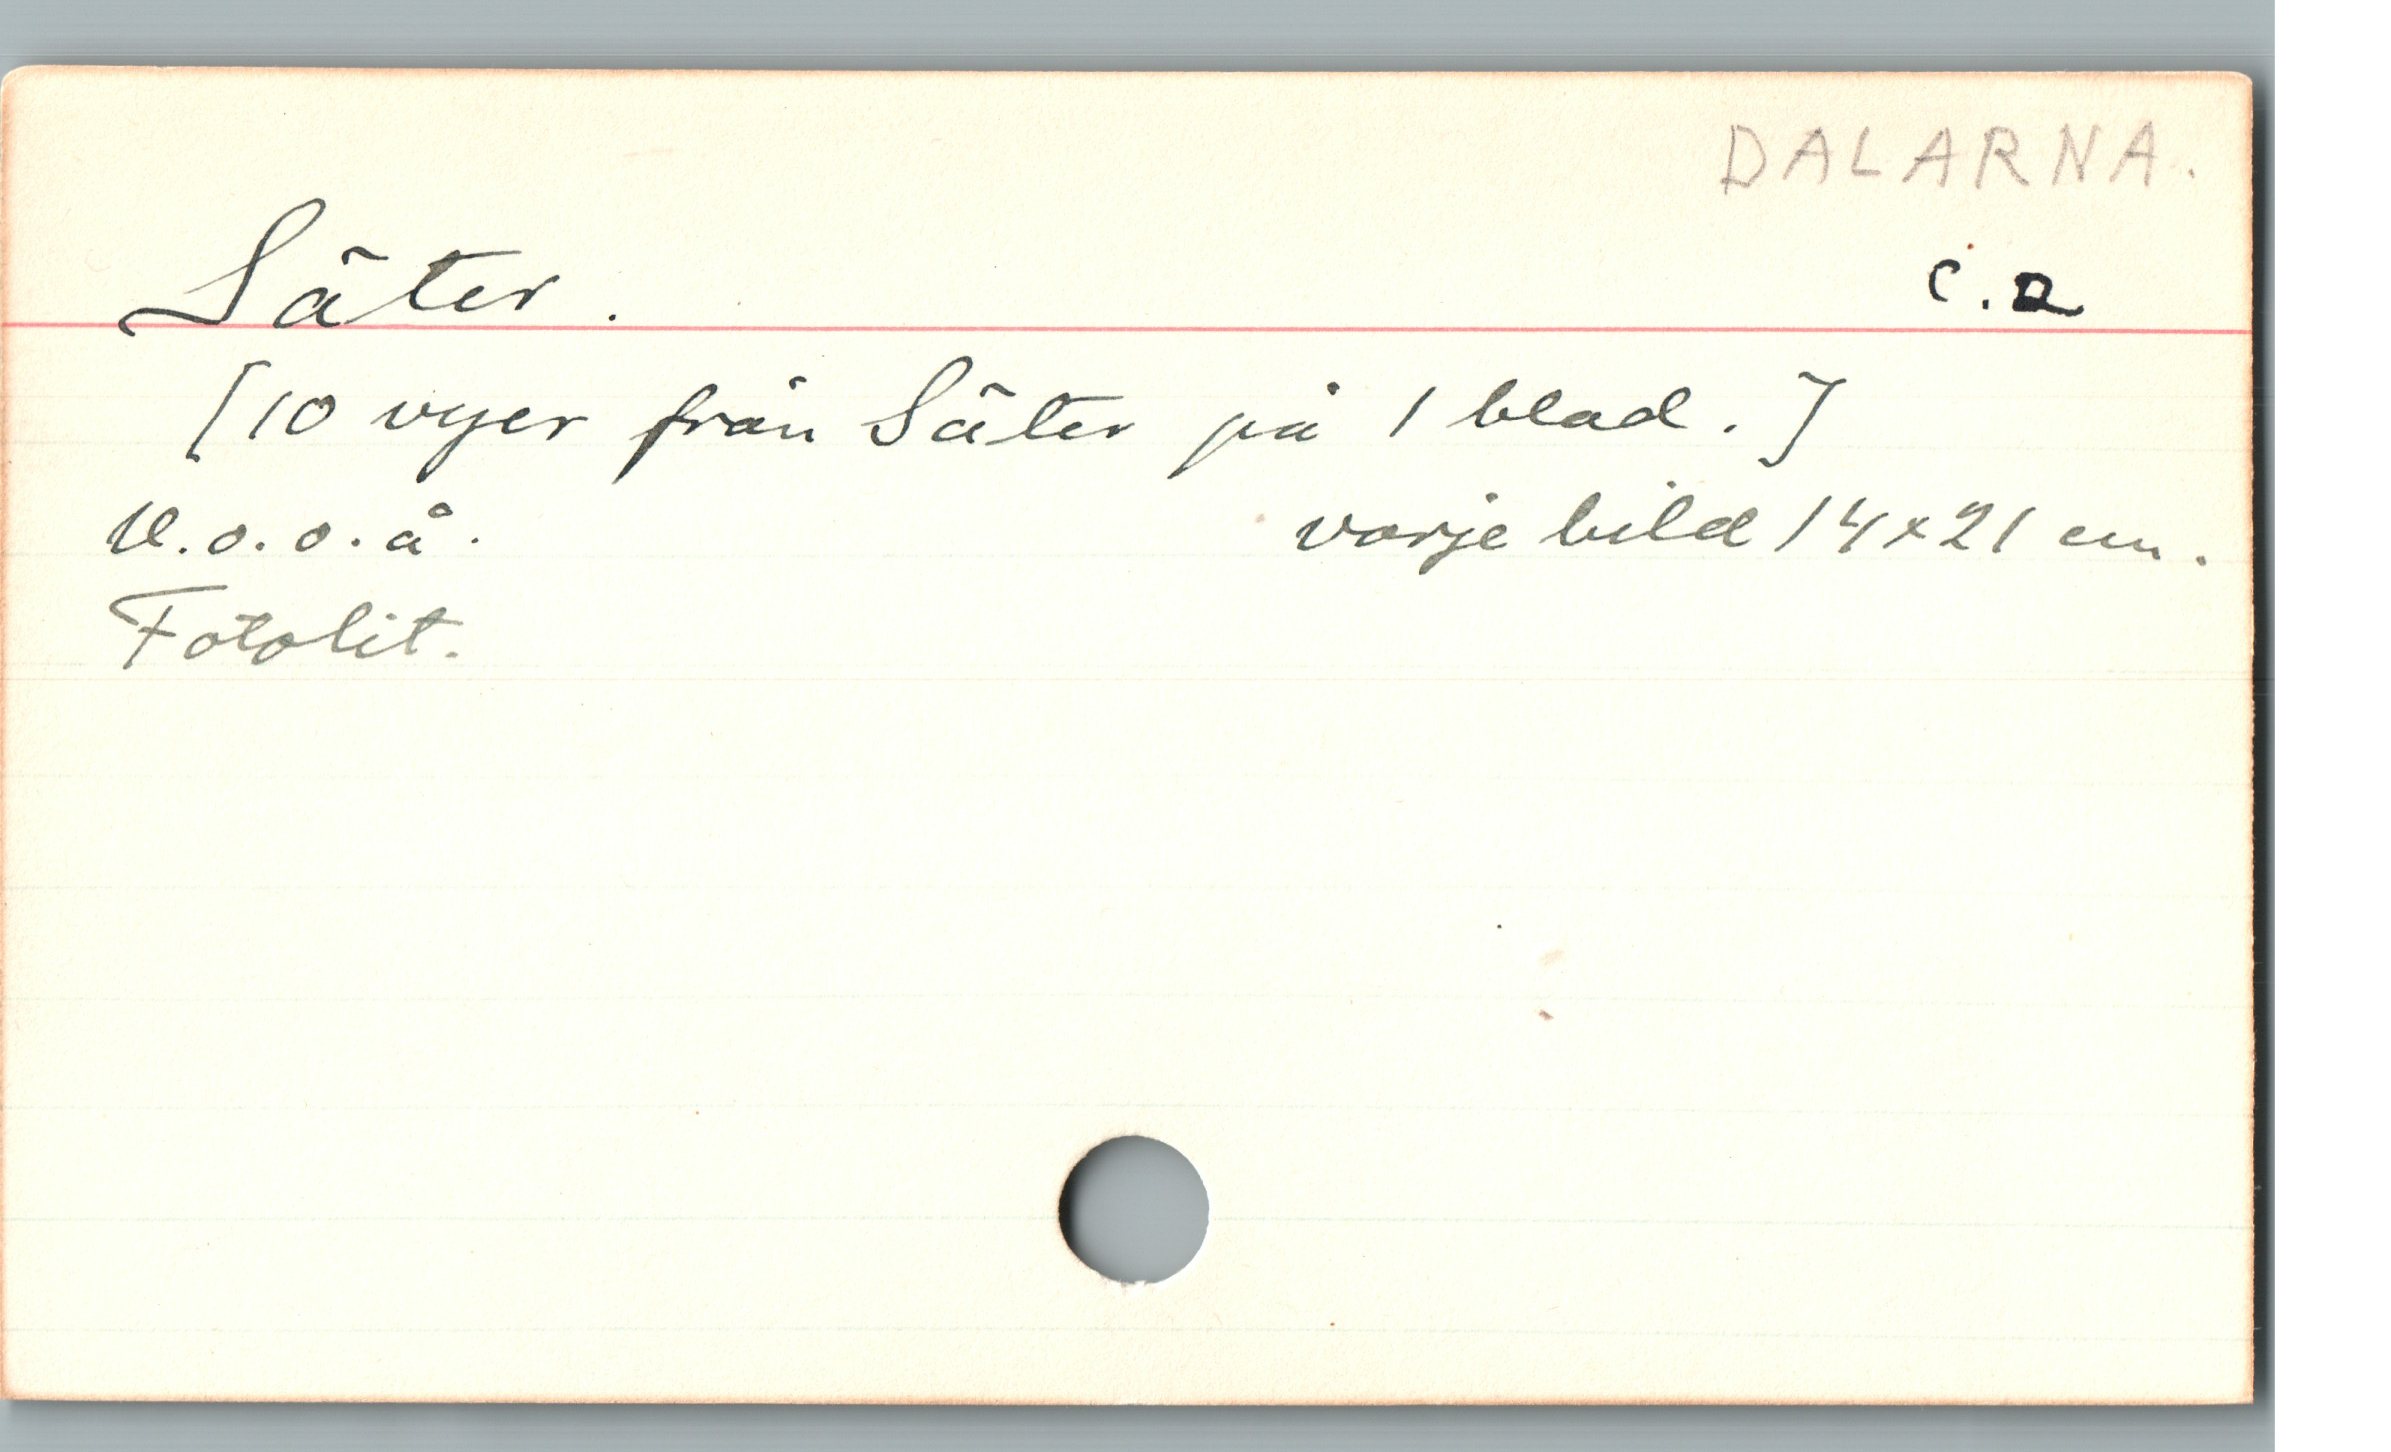 DALARNA.
Säter. c.a
[10 vyer från Säter på 1 blad.]
U.o.o.å. varje bild 14x21 cm.
Fotolit.